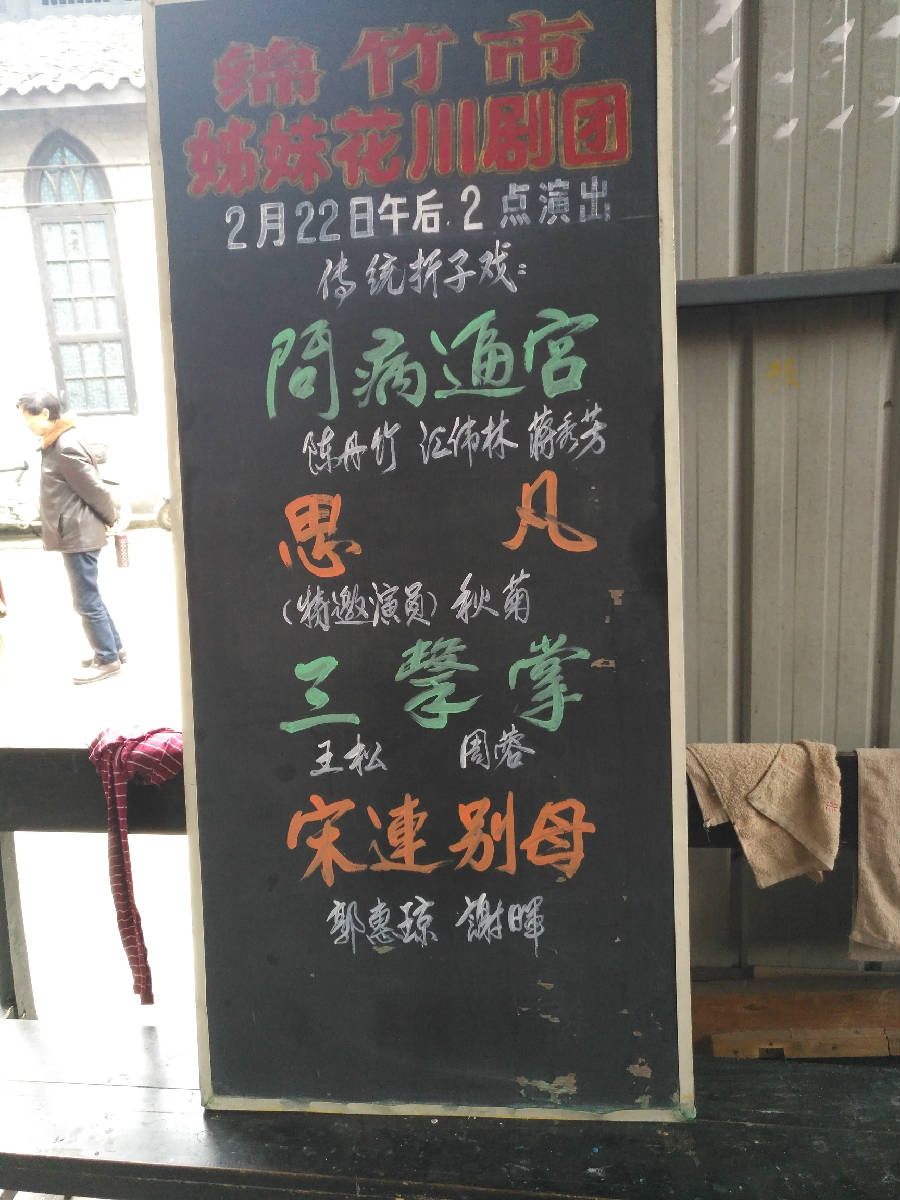 绵竹市
姊妹花川剧团
2月22日午后.2点演出
传统折子戏:
问病逼宫
陈丹竹 江伟林 蒋秀芳
思 凡
(特邀演员)秋菊
三擊掌
王松 周蓉
宋連别母
郭惠琼 谢晖